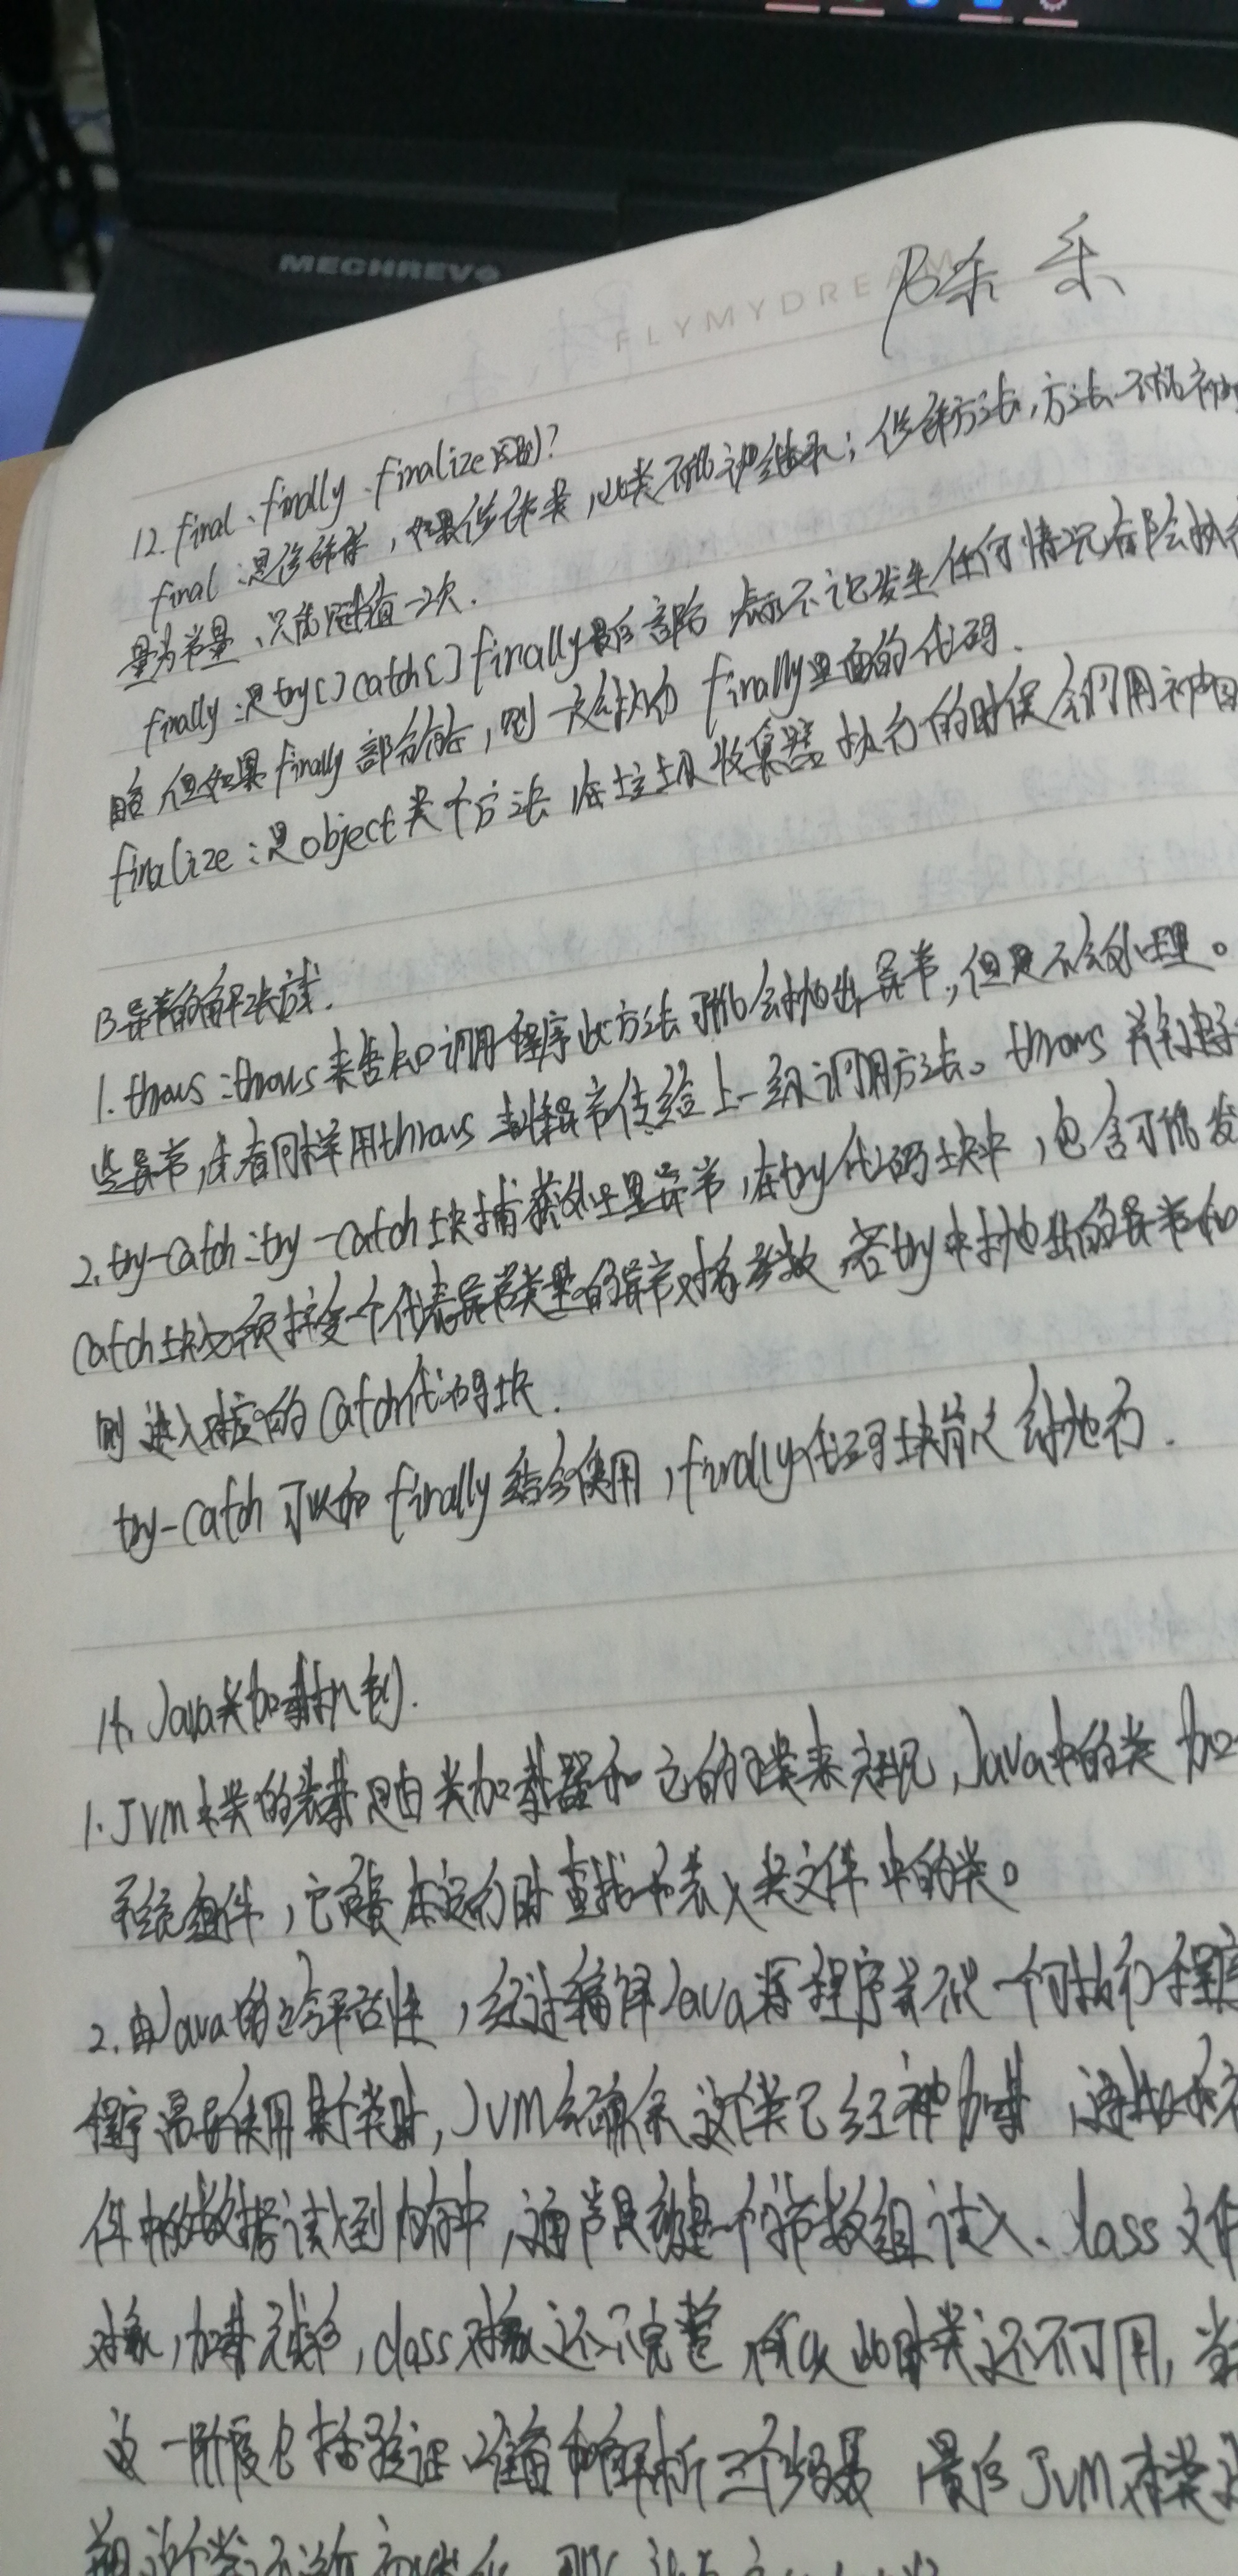 MECHREVO
FLYMYDREAM
12. final、finally、finalize区别?
final:是修饰符,如果修饰类,此类不能被继承;修饰方法,方法不能被
量为常量,只能赋值一次.
finally:是try{}catch{}finally最后部分 表示不论发生任何情况都会执行
略,但如果finally部分存在,则一定会执行finally里面的代码.
finalize:是object类个方法,在垃圾收集器执行的时候会调用被回
13 异常的解决方式.
1. throws:throws来告知调用程序此方法可能会抛出异常,但是不会处理。
些异常,或者同样用throws 将异常传给上一级调用方法。throws 关键字
2. try-catch:try-catch块捕获处理异常,在try代码块中,包含可能发
catch块必须接受一个代表异常类型的异常对象参数,若try中抛出的异常和
则进入对应的catch代码块.
try-catch可以和finally结合使用,finally代码块肯定会执行.
14. Java类加载机制.
1. JVM中类的装载是由类加载器和它的子类来实现,Java中的类加
系统组件,它负责在运行时查找和装入类文件中的类。
2. 由Java的跨平台性,经过编译Java源程序并不是一个可执行程序
程序需要使用某个类时,JVM会确保这个类已经被加载,
件中的数据读入到内存中,通常是创建一个字节数组读入.class文件
对象,加载完成后,class对象还不完整,所以此时类还不可用,当
这一阶段包括验证、准备和解析三个步骤 最后JVM对类